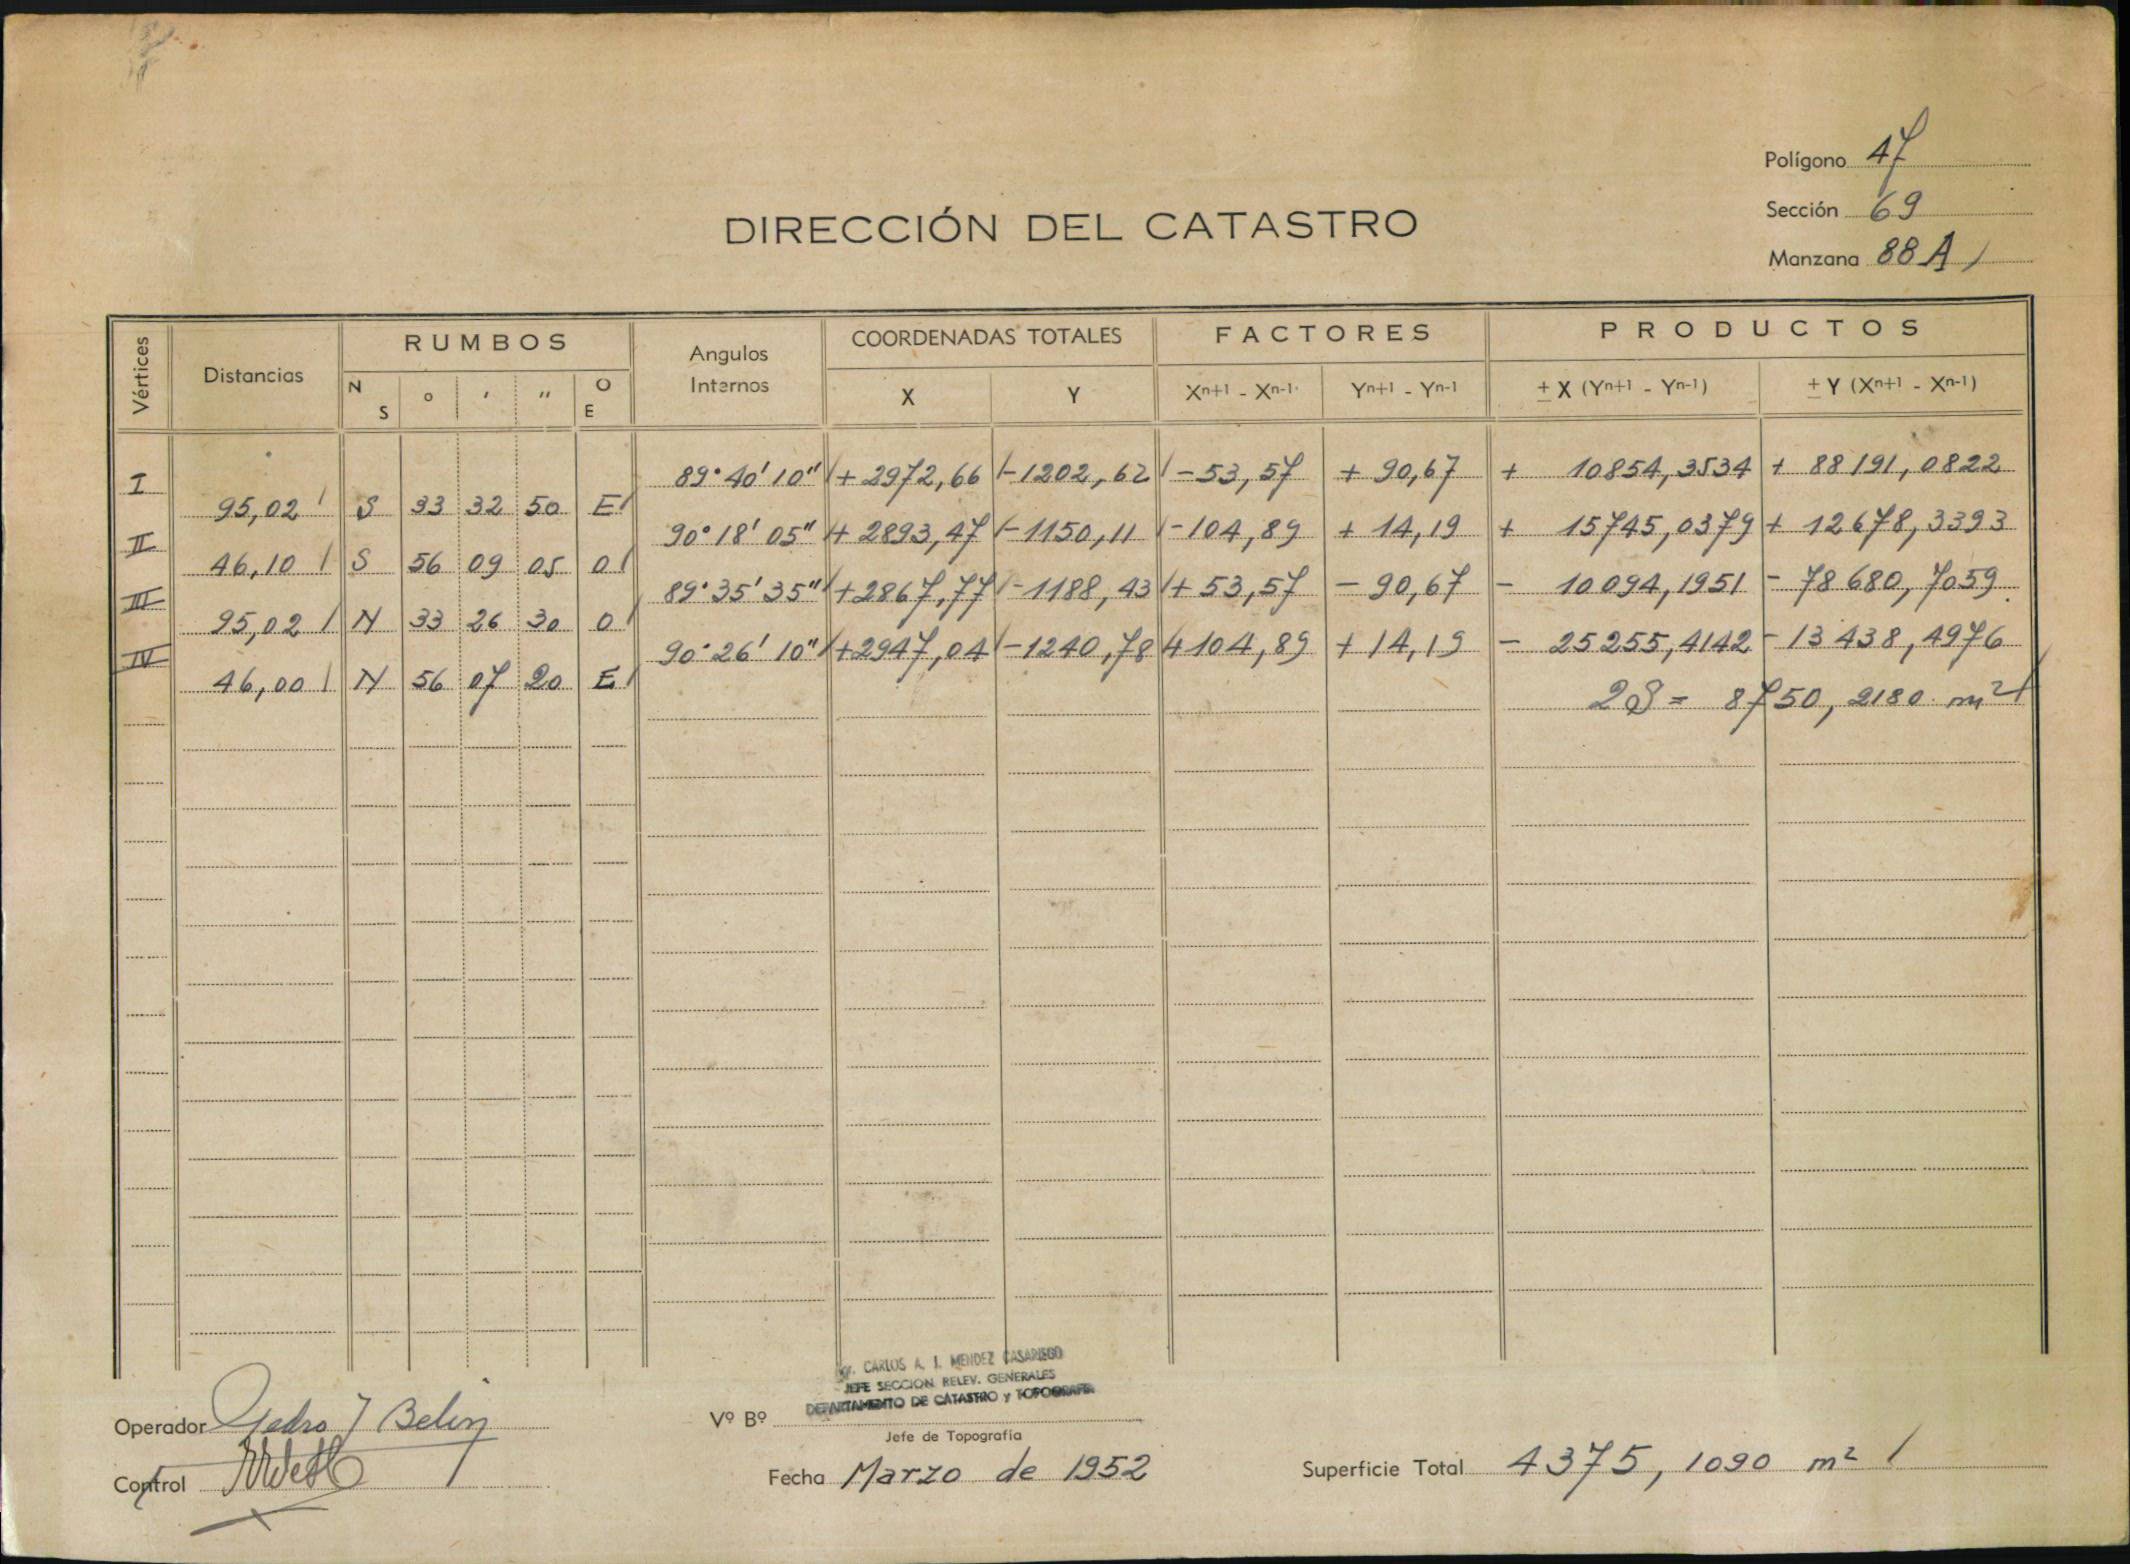 Polígono 47
Sección 69
Manzana 88 A
DIRECCIÓN DEL CATASTRO
Vértices Distancias RUMBOS Angulos Internos COORDENADAS TOTALES FACTORES PRODUCTOS
N S ° ' " O E X Y Xn+1 - Xn-1 Yn+1 - Yn-1 ± X (Yn+1 - Yn-1) ± Y (Xn+1 - Xn-1)
I 89° 40' 10" + 2972,66 - 1202,62 - 53,57 + 90,67 + 10854,3534 + 88191,0822
95,02 S 33 32 50 E
II 90° 18' 05" + 2893,47 - 1150,11 - 104,89 + 14,19 + 15745,0379 + 12678,3393
46,10 S 56 09 05 O
III 89° 35' 35" + 2867,77 - 1188,43 + 53,57 - 90,67 - 10094,1951 - 78680,7059
95,02 N 33 26 30 O
IV 90° 26' 10" + 2947,04 - 1240,78 + 104,89 + 14,19 - 25255,4142 - 13438,4976
46,00 N 56 07 20 E
2S = 8750,2180 m²
CARLOS A. I. MENDEZ CASARIEGO
JEFE SECCION RELEV. GENERALES
DEPARTAMENTO DE CATASTRO y TOPOGRAFIA
Operador Pedro J Belin
Vº Bº
Jefe de Topografía
Control
Fecha Marzo de 1952
Superficie Total 4375,1090 m²